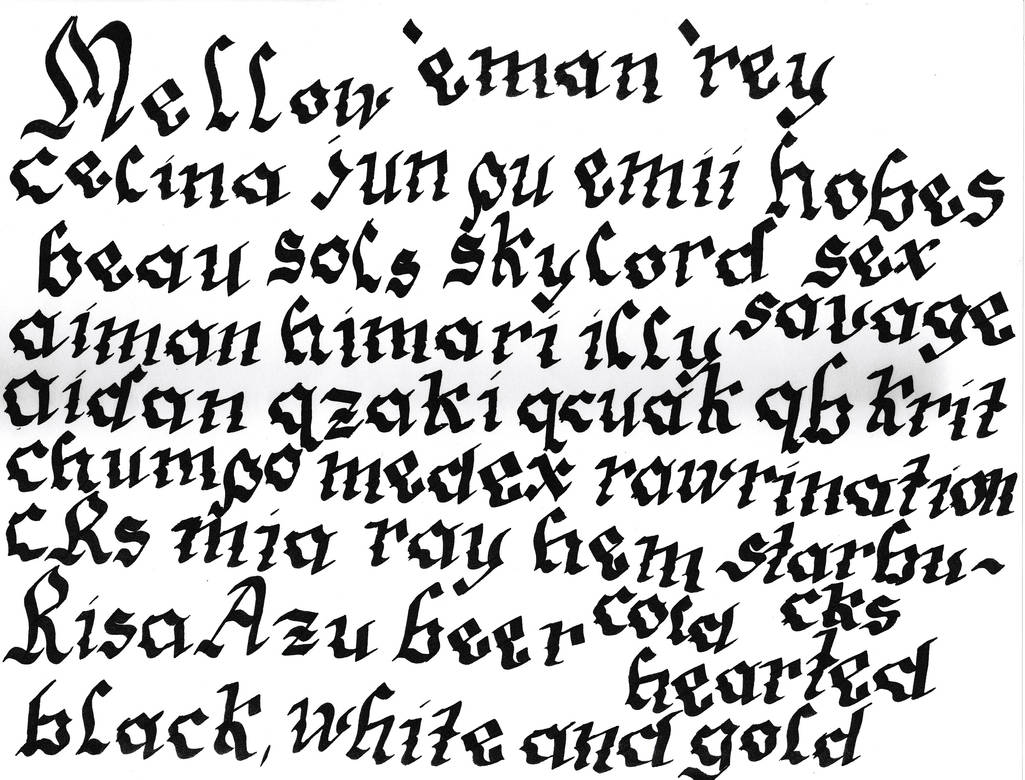 Mellow 'eman 'rey
celina jun pu emii hobes
beau sols skylord sex
aiman himari illy savage
aidan qzaki qcuak qb krit
chumpo medex rawrination
cks mia ray hem starbu-
Risa Azu beer cold cks
hearted
black, white and gold